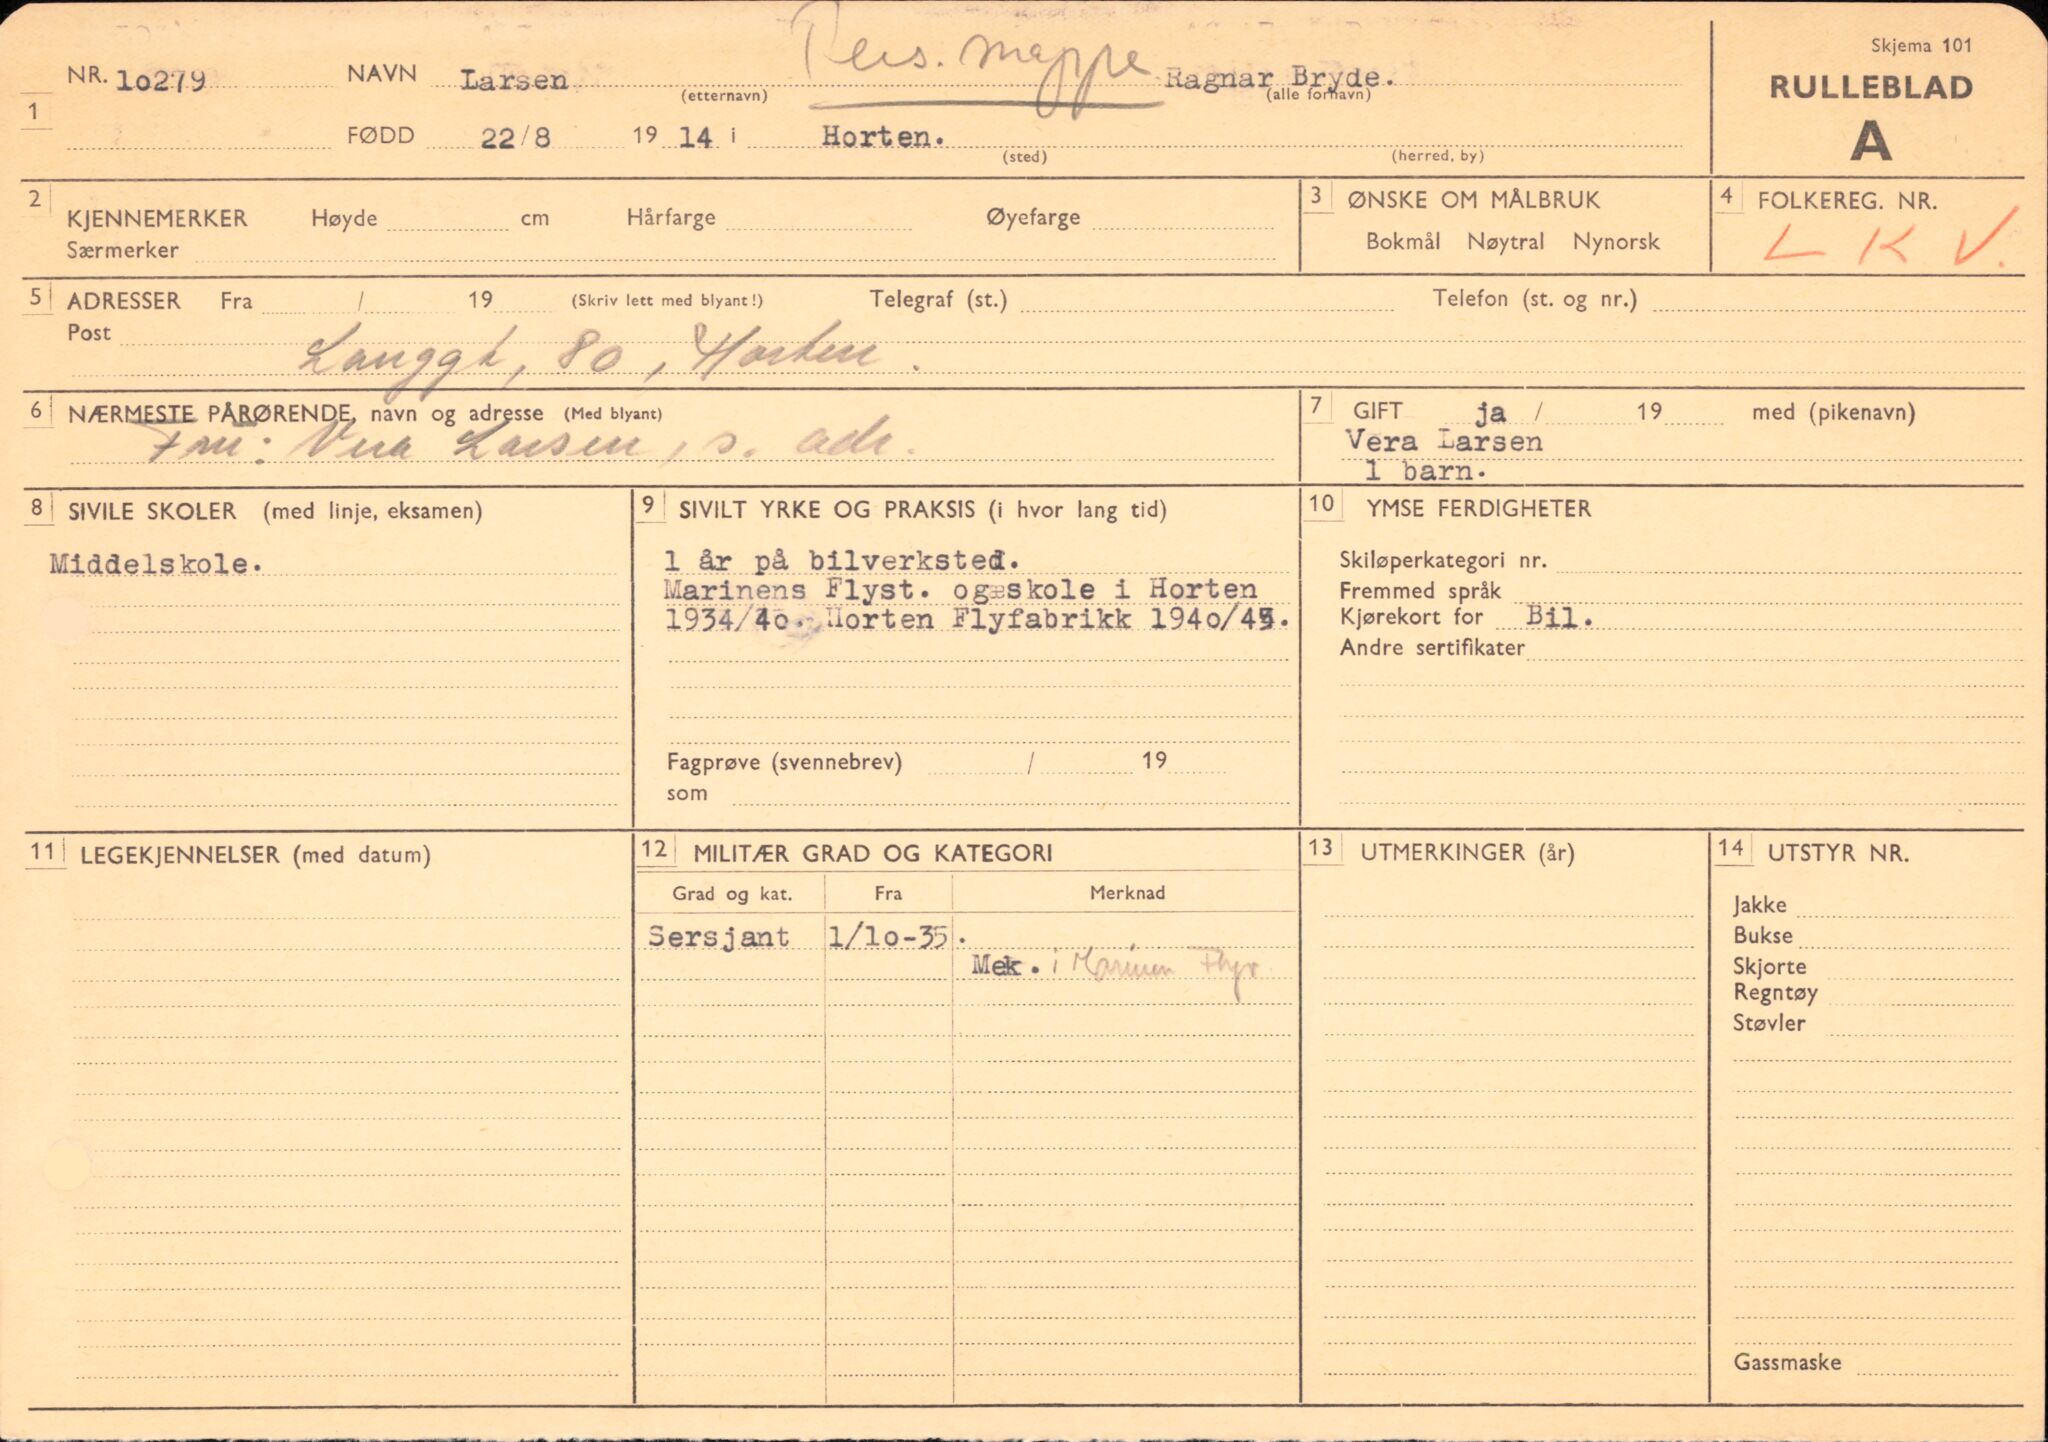 Pers. mappe
Skjema 101
RULLEBLAD
A
1 NR. 10279 NAVN Larsen (etternavn) Ragnar Bryde. (alle fornavn)
FØDD 22/8 1914 i Horten. (sted) (herred, by)
2 KJENNEMERKER Høyde cm Hårfarge Øyefarge
Særmerker
3 ØNSKE OM MÅLBRUK
Bokmål Nøytral Nynorsk
4 FOLKEREG. NR.
L K V.
5 ADRESSER Fra / 19 (Skriv lett med blyant!) Telegraf (st.) Telefon (st. og nr.)
Post
Langgt, 80, Horten.
6 NÆRMESTE PÅRØRENDE, navn og adresse (Med blyant)
Fru: Vera Larsen, s. adr.
7 GIFT ja / 19 med (pikenavn)
Vera Larsen
1 barn.
8 SIVILE SKOLER (med linje, eksamen)
Middelskole.
9 SIVILT YRKE OG PRAKSIS (i hvor lang tid)
1 år på bilverksted.
Marinens Flyst. og skole i Horten
1934/40. Horten Flyfabrikk 1940/45.
Fagprøve (svennebrev) / 19
som
10 YMSE FERDIGHETER
Skiløperkategori nr.
Fremmed språk
Kjørekort for Bil.
Andre sertifikater
11 LEGEKJENNELSER (med datum)
12 MILITÆR GRAD OG KATEGORI
Grad og kat. Fra Merknad
Sersjant 1/10-35.
Mek. i Marinen
13 UTMERKINGER (år)
14 UTSTYR NR.
Jakke
Bukse
Skjorte
Regntøy
Støvler
Gassmaske